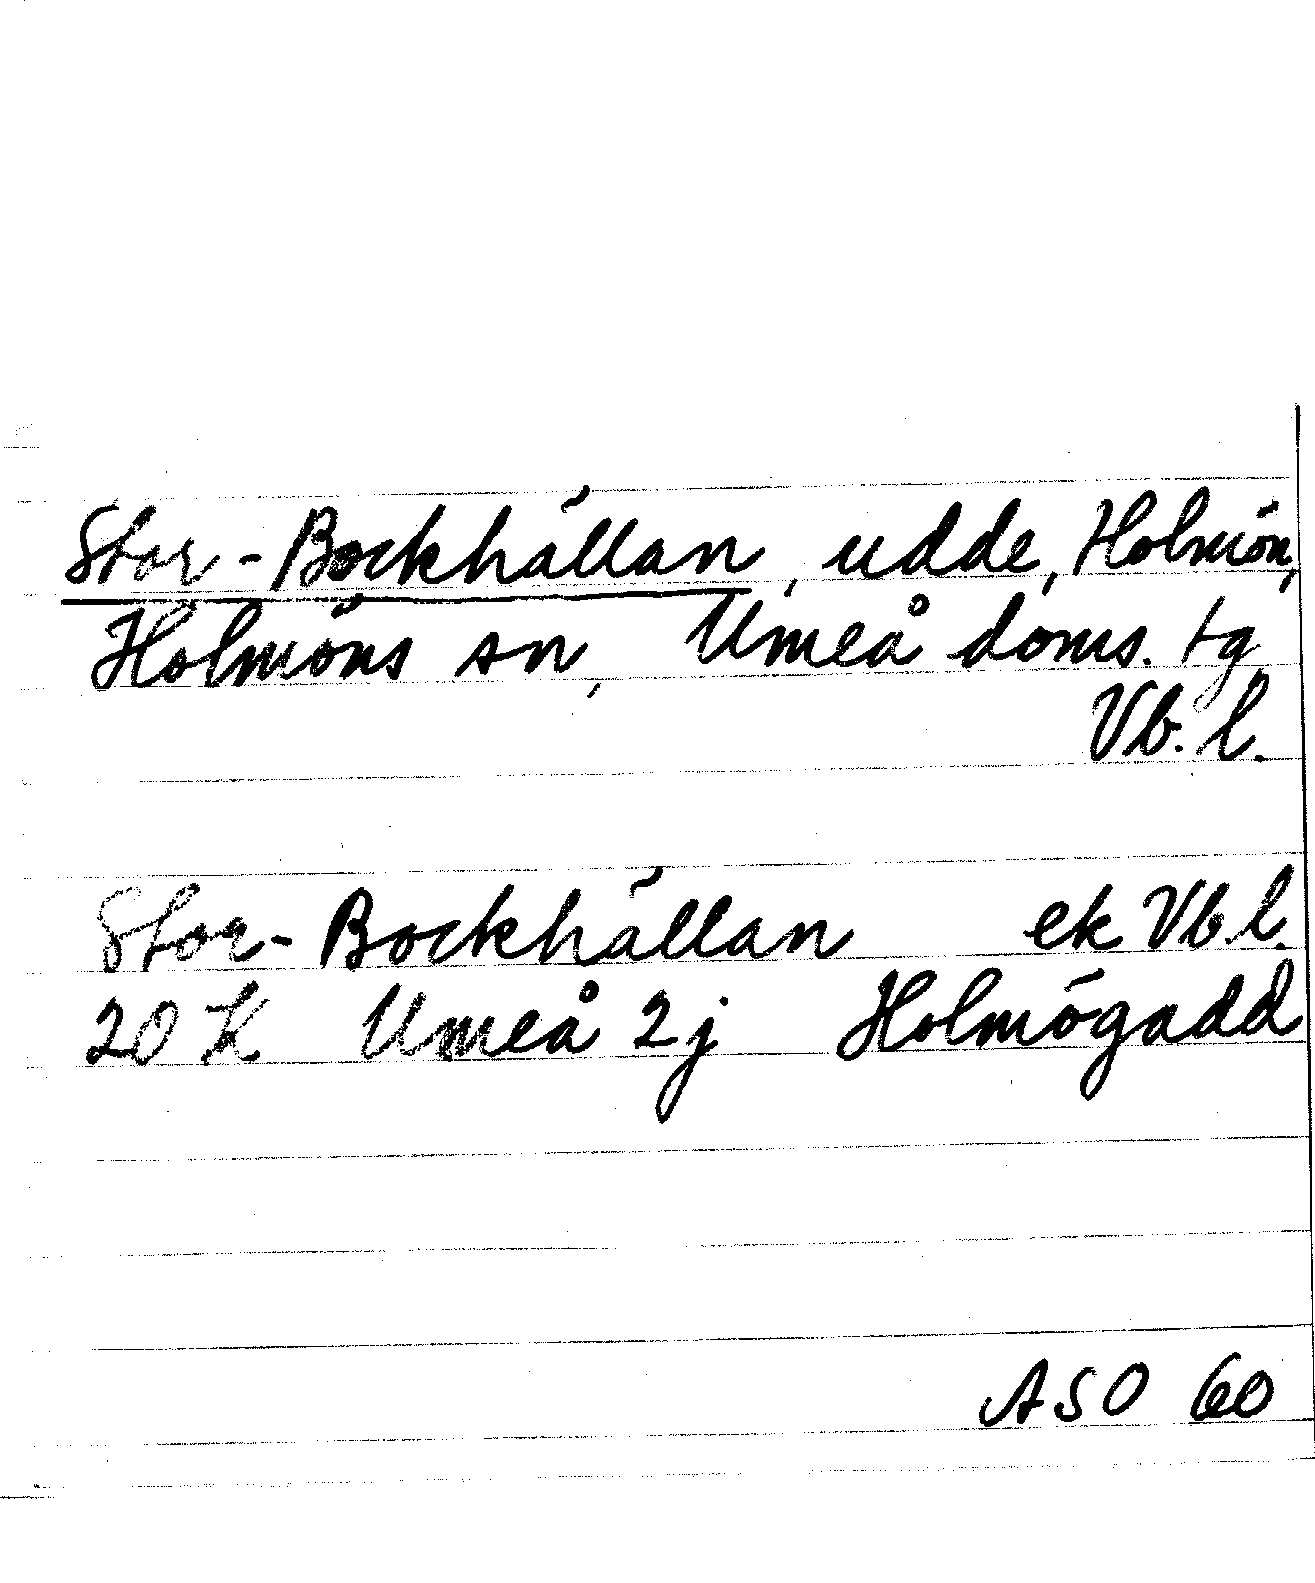 Stor-Bockhällan, udde, Holmön,
Holmöns sn, Umeå doms. tg
Vb. l.
Stor-Bockhällan ek Vb. l.
20 K Umeå 2j Holmögadd
ASO 60